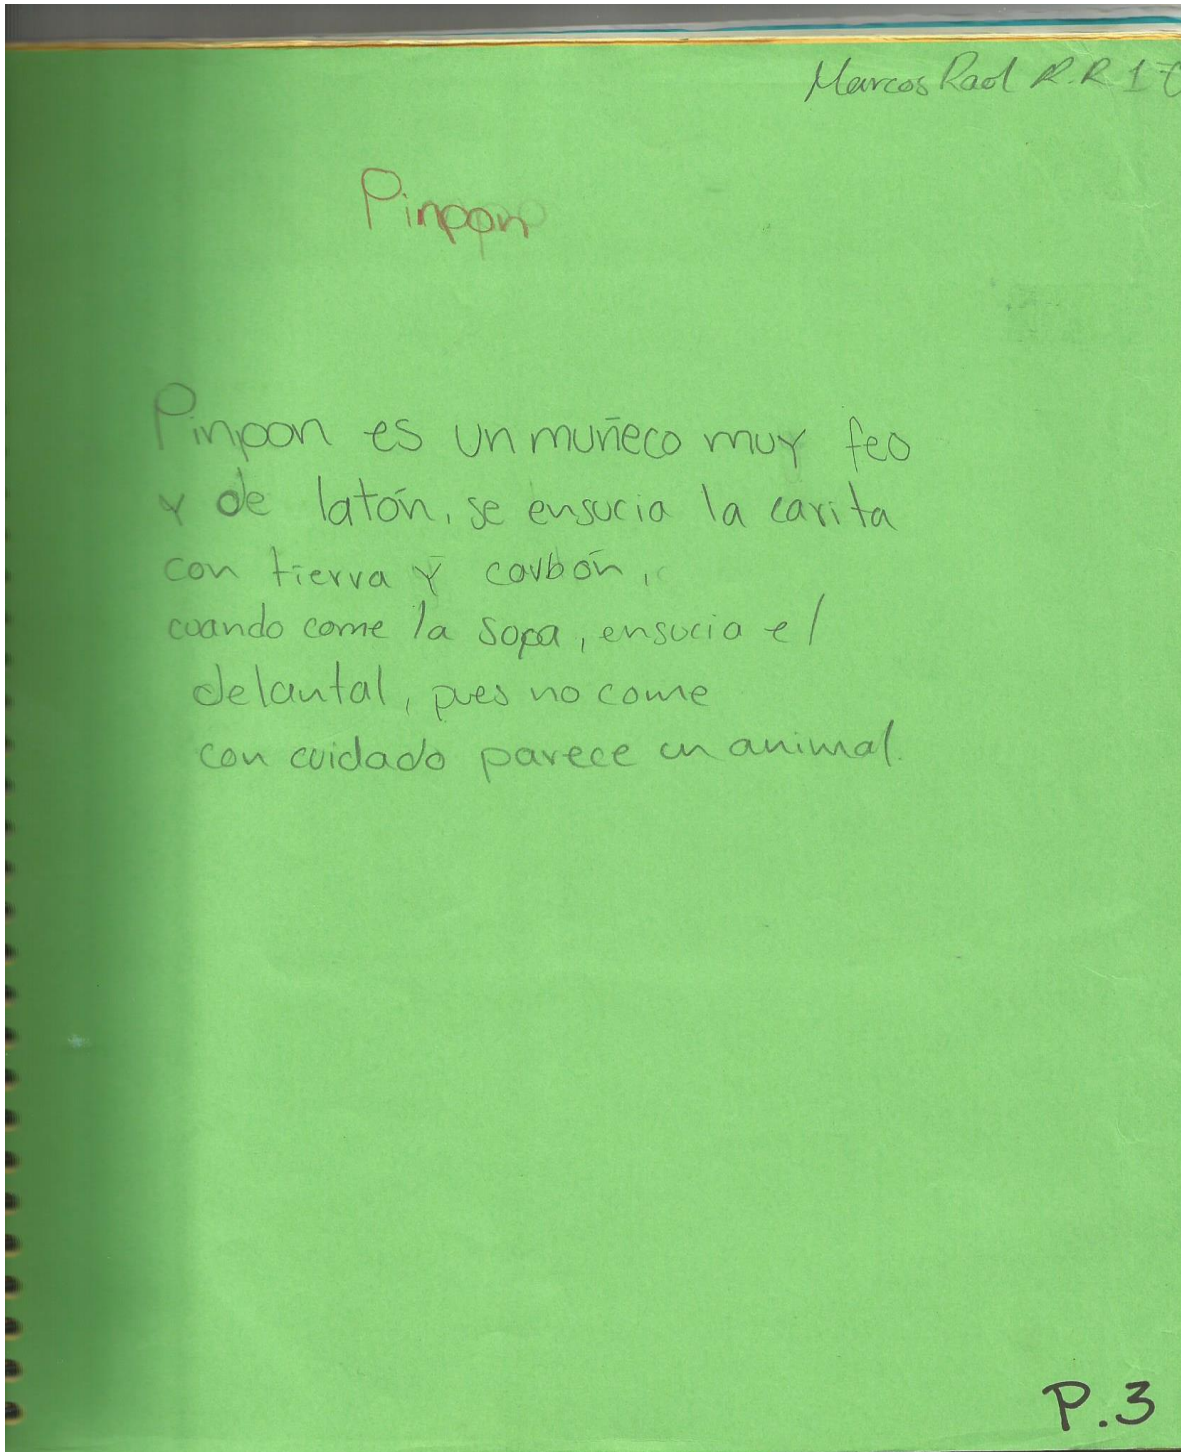 Marcos Raol R.R 1-C
Pinpon
Pinpon es un muñeco muy feo
y de latón, se ensucia la carita
con tierra y carbón,
cuando come la sopa, ensucia el
delantal, pues no come
con cuidado parece un animal.
P.3